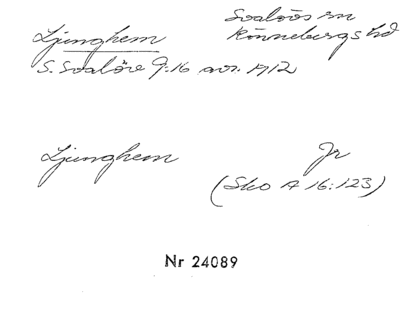 Ljunghem
Svalövs sn
Rönnebergs hd
S. Svalöv 9:16 avs. 1912
Ljunghem
Jr
(Sko A 16:123)
Nr 24089